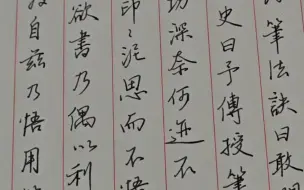 筆法訣曰敢
史曰予傳授筆
功深奈何迹不
印々泥思而不悟
欲書乃偶以利
自兹乃悟用